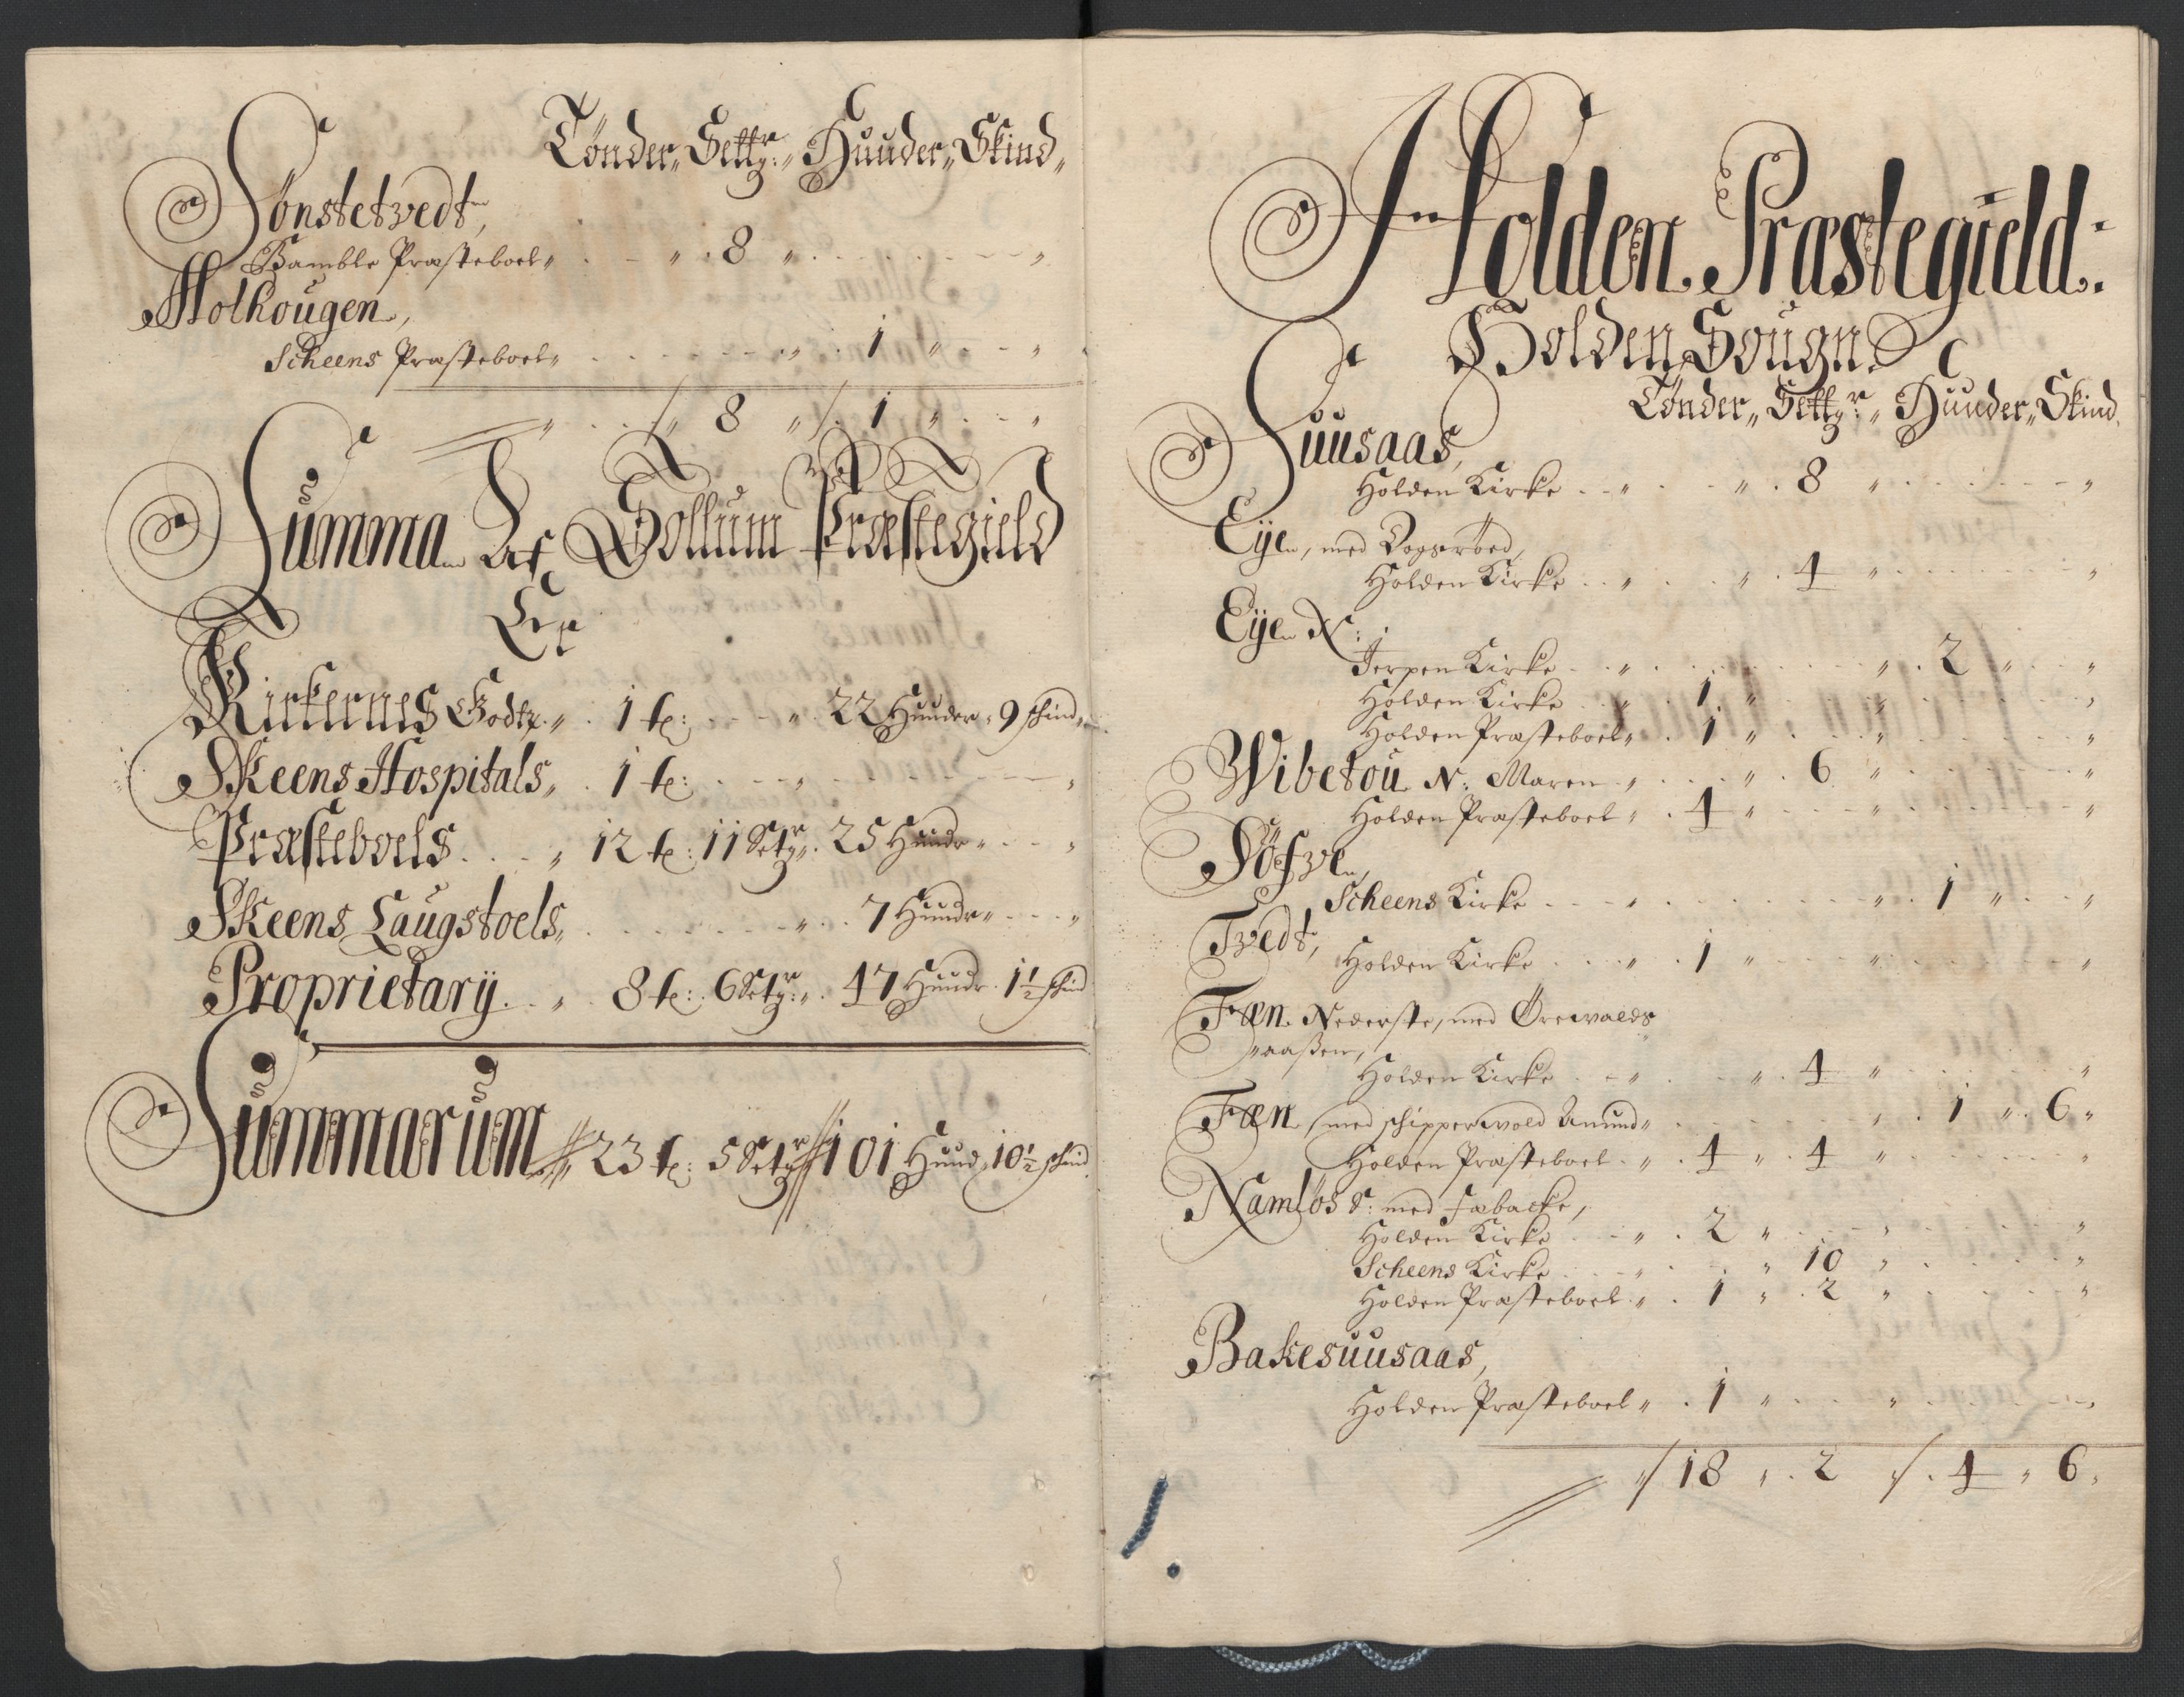 Tönder„ Settr:„ Huuder„ Skind„
Sönstetvedt,
Bamble Præsteboel„ . - „ . 8 „ . . . . . - - „
Holhougen,
Scheens Præsteboel„ . . . . . . . „ . 1 „ . - „
„ . . /„ 8 „ /. 1 „ . - „
Summa Af Sollum Præstegield
Er
Kirkernes Godtz„ . 1 t: . - . „ . 22 Huuder„ 9 schind„
Skeens Hospitals„ . 1 t: . . - . „ . - - - „
Præsteboels . . „ 12 t: 11 Setr„ . 25 Huudr„ . - „
Skeens Laugstoels„ . . . . . . „ . . 7 Huudr„ . - . „
Proprietarÿ . . „ 8 t: . 6 Setr:„ . 47 Huudr . 1½ schind
Summarum // 23 t: 5 Setr // 101 Huud„ 10½ schind
Holden Præstegield:
Holden Sougn
Tönder„ Settr:„ Huuder„ Skind„
Suusaas,
Holden Kirke . . „ . . „ . 8 „ . . . . „
Eÿe, med Dogsröed,
Holden Kirke . . „ . . „ . 4 „ . . . . „
Eÿe N:
Jerpen Kirke . . „ . . . . . „ . 2 „ . „
Holden Kirke . . „ . 1 „ . . . „ . . . „
Holden Præsteboel„ . 1 „ . . . „ . . . „
Wibetou N: Maren „ . . . „ . 6 „ . . . „
Holden Præsteboel „ . 4 „ . . . „ . . . „
Söfve,
Scheens Kirke . . . „ . . . . . „ . 1 „ . „
Tvedt,
Holden Kirke . . . „ . 1 „ . . . „ . . . „
Fæn Nederste, med Örewalds
„aaßen,
Holden Kirke . . „ . . „ . 4 „ . . . „
Fæn med schipperwold Amund„ . . . . . „ . 1 „ . 6„
Holden Præsteboel . „ . 4 „ . 4 „ . . . „
Namlös S: med Fæbacke,
Holden Kirke . . „ . 2 „ . . . „ . . . „
Scheens Kirke . . „ . . „ 10 „ . . . „
Holden Præsteboel„ . 1 „ . 2 „ . . . „
Bakesuusaas,
Holden Præsteboel„ . 1 „ . . . „ . . . „
„/ 18 „ . 2 /. 4 „ 6„